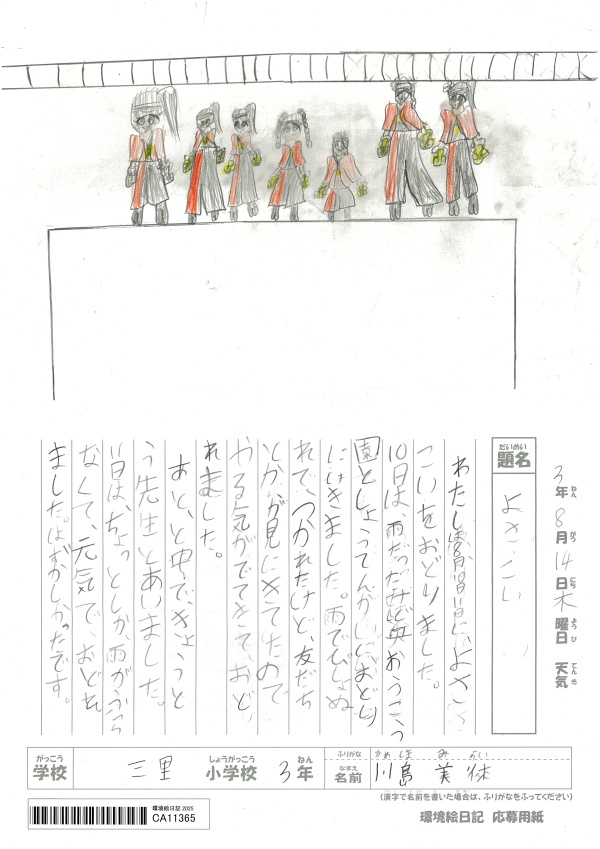 3年8月14日木曜日 天気
ねん がつ にち ようび てんき
だいめい
題名
よさこい
わたしは8月10日11日に、よさ
こいをおどりました。
10日は、雨だったみど おうこう
園としょうてんがいにおどり
にいきました。雨でびしょぬ
れで、つかれたけど、友だち
とかが見にきてたので、
やる気がでてきておど
れました。
あと、と中で、きょうと
う先生とあいました。
11日は、ちょっとしか雨がふら
なくて、元気で、おどれ
ました。はずかしかったです。
がっこう
学校
三里
しょうがっこう
小学校
3年
ねん
ふりがな
かめしま み
なまえ
名前
島 美
(漢字で名前を書いた場合は、ふりがなをふってください)
環境絵日記 2025
CA11365
環境絵日記 応募用紙